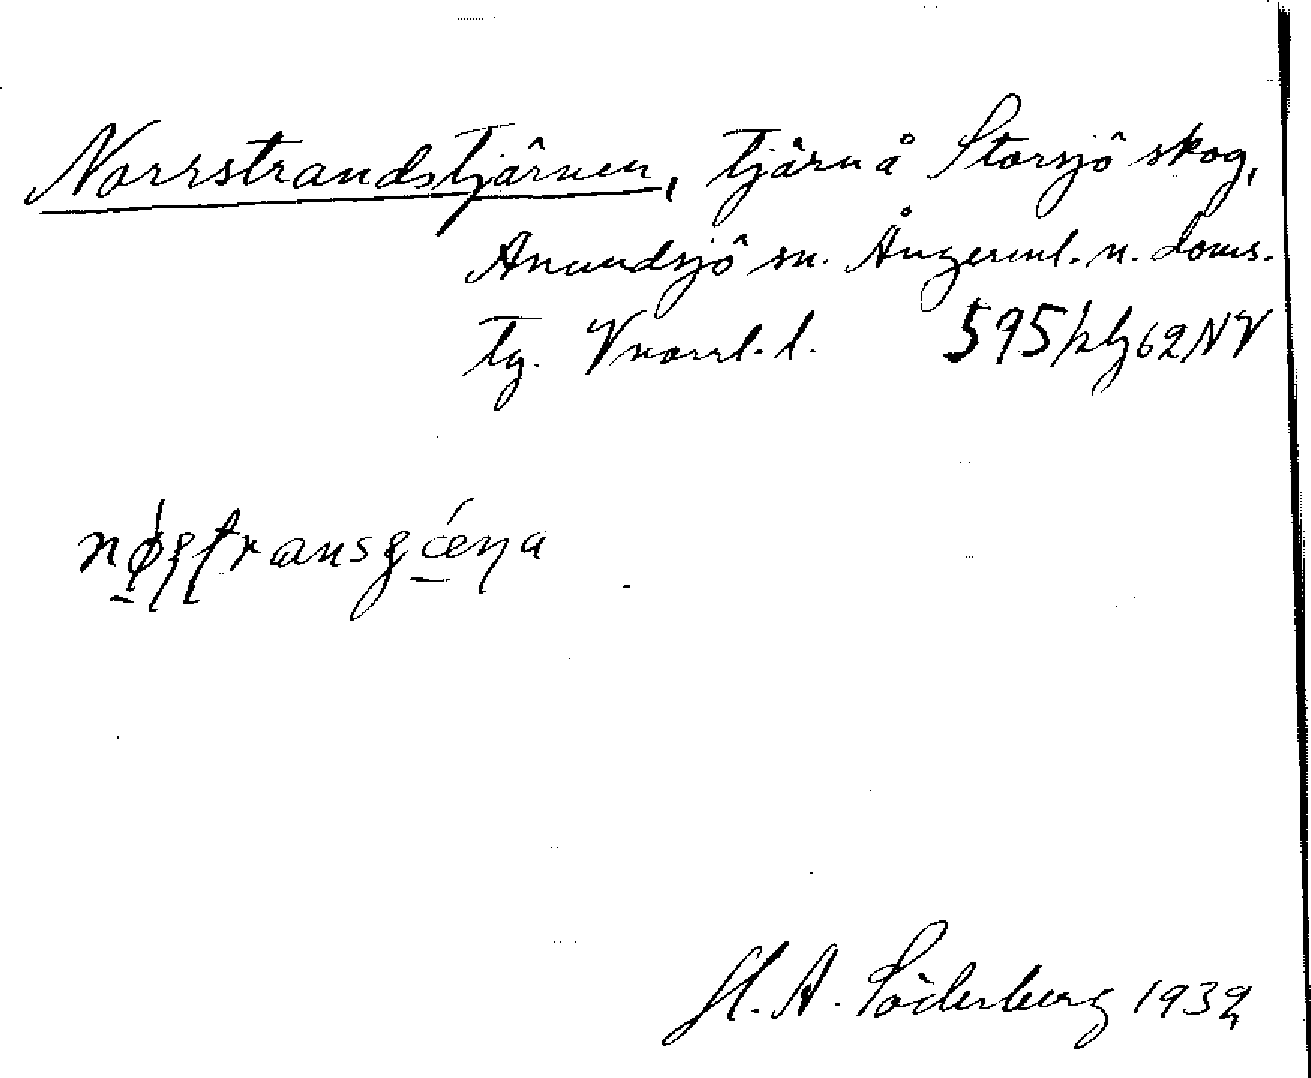 Norrstrandstjärnen, tjärn å Storsjö skog,
Anundsjö sn. Ångerml. n. doms.
tg. Vnorrl. l. 595 62 NV
H. A. Söderberg 1932